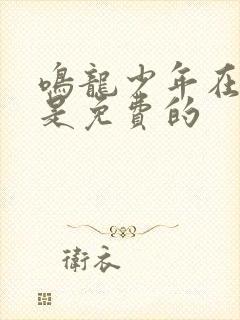 鳴龍少年在
是免費的
衛衣